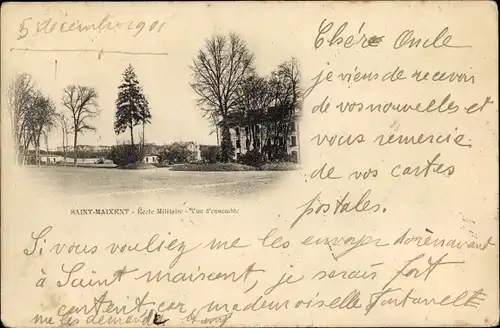 5 décembre 1901
Chère Oncle
je viens de recevoir
de vos nouvelles et
vous remercie
de vos cartes
postales.
SAINT-MAIXENT - École Militaire - Vue d'ensemble
Si vous vouliez me les envoyer dorénavant
à Saint maixent, je serais fort
contente car mademoiselle Fontanelle
me les demande